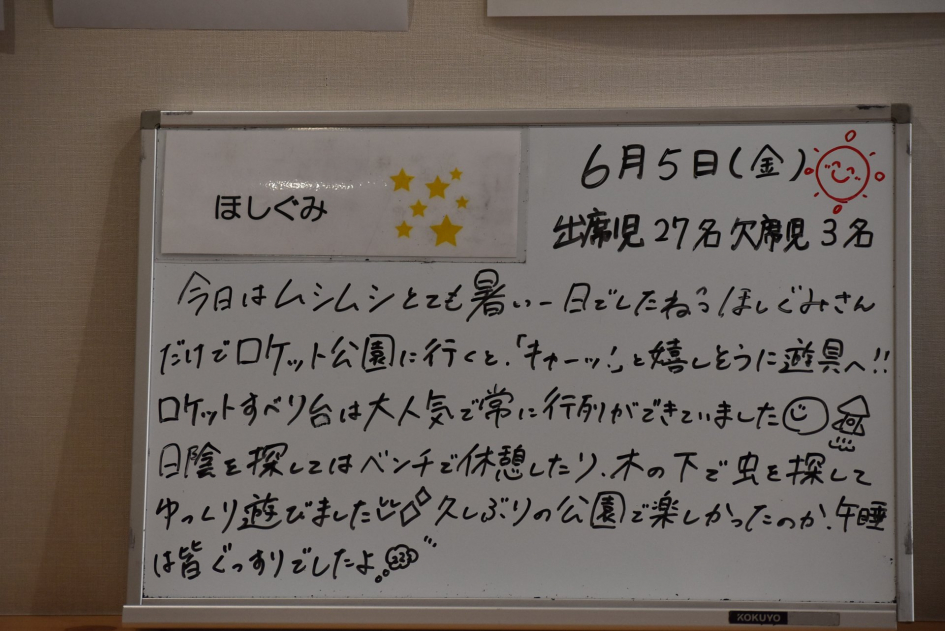 ほしぐみ
6月5日(金)
出席児 27名 欠席児 3名
今日はムシムシとても暑い一日でしたね ほしぐみさん
だけでロケット公園に行くと、「キャーッ!」と嬉しそうに遊具へ!!
ロケットすべり台は大人気で常に行列ができていました
日陰を探してはベンチで休憩したり、木の下で虫を探して
ゆっくり遊びました 久しぶりの公園で楽しかったのか、午睡
は皆ぐっすりでしたよ。zzz
KOKUYO